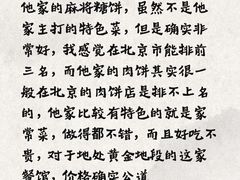 他家的麻将糖饼，虽然不是他
家主打的特色菜，但是确实非
常好，我感觉在北京市能排前
三名，而他家的肉饼其实很一
般在北京的肉饼店是排不上名
的，他家比较有特色的就是家
常菜，做得都不错，而且好吃不
贵，对于地处黄金地段的这家
餐馆，价格确实公道